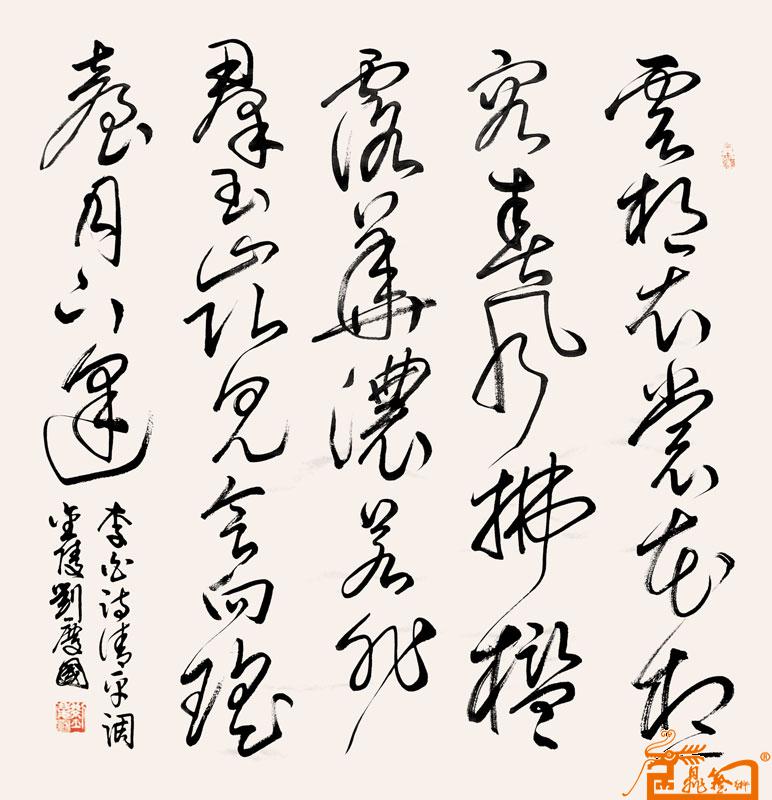 雲想衣裳花想
容春風拂檻
露華濃若非
羣玉山頭見會向瑤
臺月下逢
李白詩清平調
金陵劉國